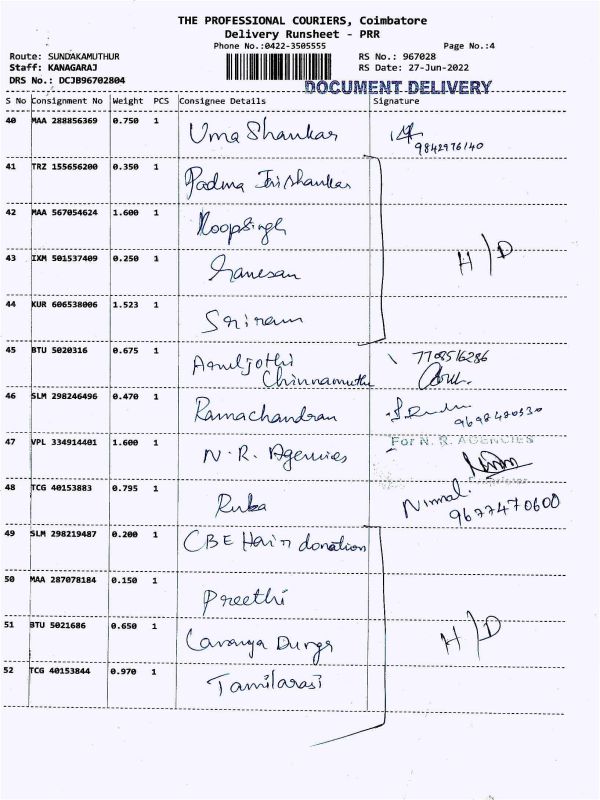 THE PROFESSIONAL COURIERS, Coimbatore
Delivery Runsheet - PRR
Phone No.:0422-3505555 Page No.:4
Route: SUNDAKAMUTHUR RS No.: 967028
Staff: KANAGARAJ RS Date: 27-Jun-2022
DRS No.: DCJB96702804
DOCUMENT DELIVERY
S No Consignment No Weight PCS Consignee Details Signature
40 MAA 288856369 0.750 1 Uma Shankar
9842976140
41 TRZ 155656200 0.350 1 Padma Jrishankar
42 MAA 567054624 1.600 1 Roopsingh
43 IXM 501537409 0.250 1 Ganesan H/D
44 KUR 606538006 1.523 1 Sriram
45 BTU 5020316 0.675 1 Aruljothi 7708516286
Chinnamuthu
46 SLM 298246496 0.470 1 Ramachandran
9698480530
47 VPL 334914401 1.600 1 N. R. Agencies For N. R. AGENCIES
48 TCG 40153883 0.795 1 Ruba Nirmal.
9677470600
49 SLM 298219487 0.200 1 CBE Hair donation
50 MAA 287078184 0.150 1 Preethi
51 BTU 5021686 0.650 1 Lavanya Durga H/D
52 TCG 40153844 0.970 1 Tamilarasi